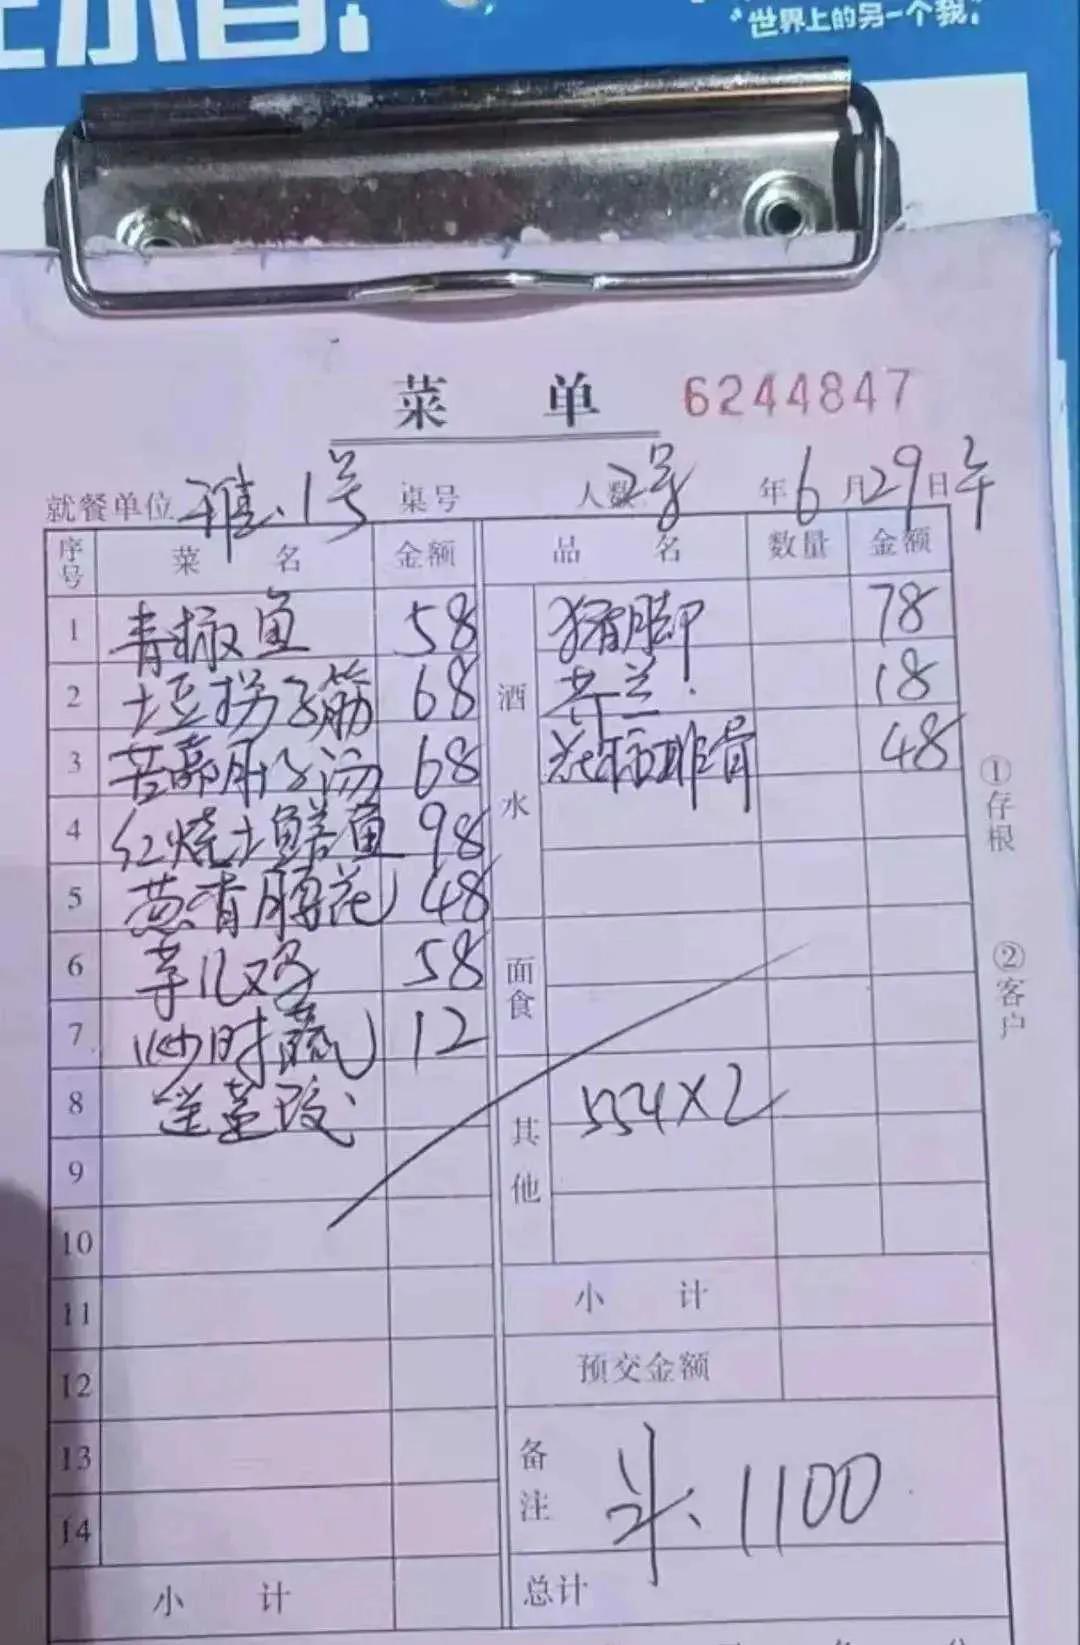 世界上的另一个我
菜 单 6244847
就餐单位 雅.1号 桌号 人数 2号 年 6 月 29 日 午
序号 菜 名 金额 品 名 数量 金额
1 青椒鱼 58 酒水 猪脚 78
2 土豆拐子筋 68 芥兰 18
3 肚子汤 68 排骨 48
4 红烧土鳝鱼 98
5 葱香腰花 48
6 芋儿鸡 58 面食
7 炒时蔬 12
8 其他 554×2
9
10
11 小 计
12 预交金额
13 备注 1100
14
小 计 总计
①存根
②客户